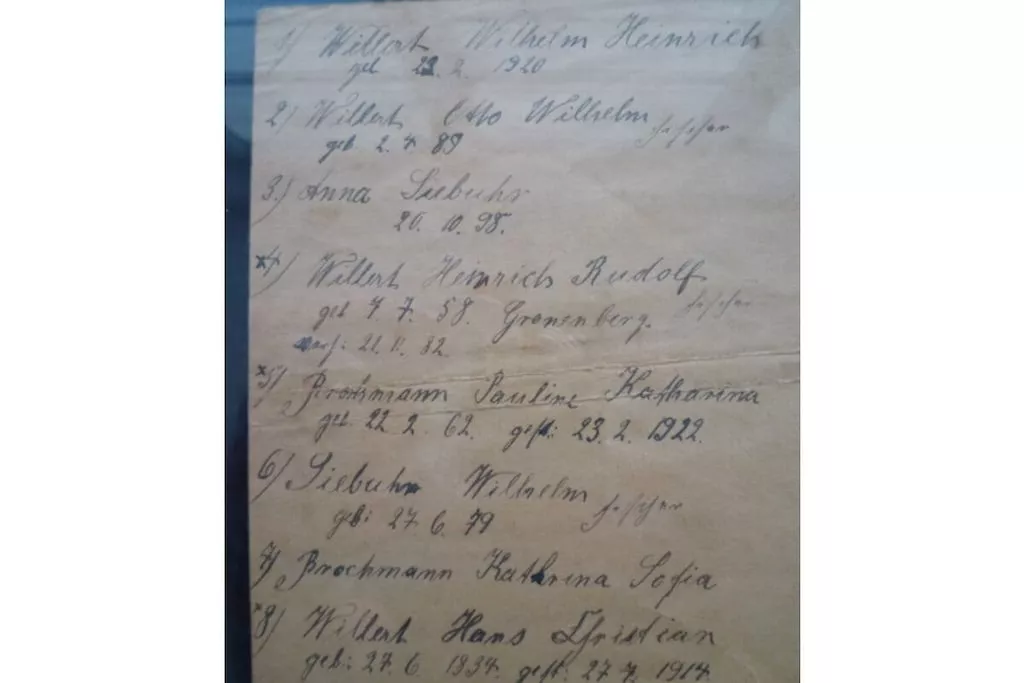 1) Willert Wilhelm Heinrich
geb 23. 2. 1920
2) Willert Otto Wilhelm
geb. 2. 4. 89
3.) Anna Siebuhr
20. 10. 98.
x4) Willert Heinrich Rudolf
geb 7. 7. 58. Gronenberg.
21. 11. 82.
x5) Brochmann Pauline Katharina
geb 22. 2. 62. gest: 23. 2. 1922.
6) Siebuhr Wilhelm
geb: 27. 6. 79
7) Brochmann Kathrina Sofia
x8) Willert Hans Christian
geb: 27. 6. 1834. gest: 27. 7. 1914.